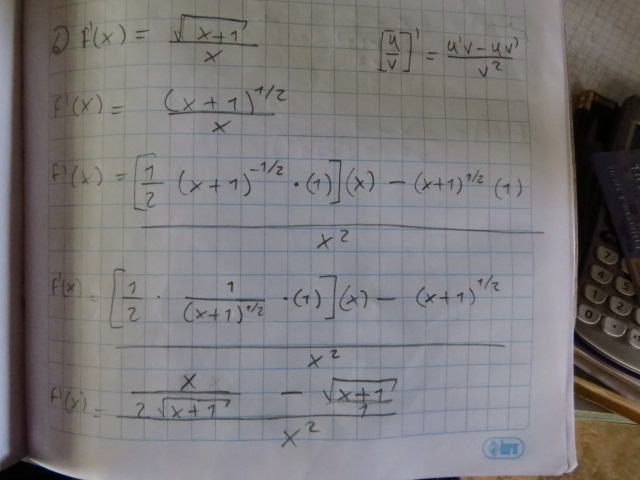 6) f'(x) = √(x+1) / x    [u/v]' = (u'v - uv') / v²
f'(x) = (x+1)^1/2 / x
f'(x) = ([1/2 (x+1)^-1/2 · (1)](x) - (x+1)^1/2 (1)) / x²
f'(x) = ([1/2 · 1/(x+1)^1/2 · (1)](x) - (x+1)^1/2) / x²
f'(x) = (x / 2√(x+1) - √(x+1) / 1) / x²